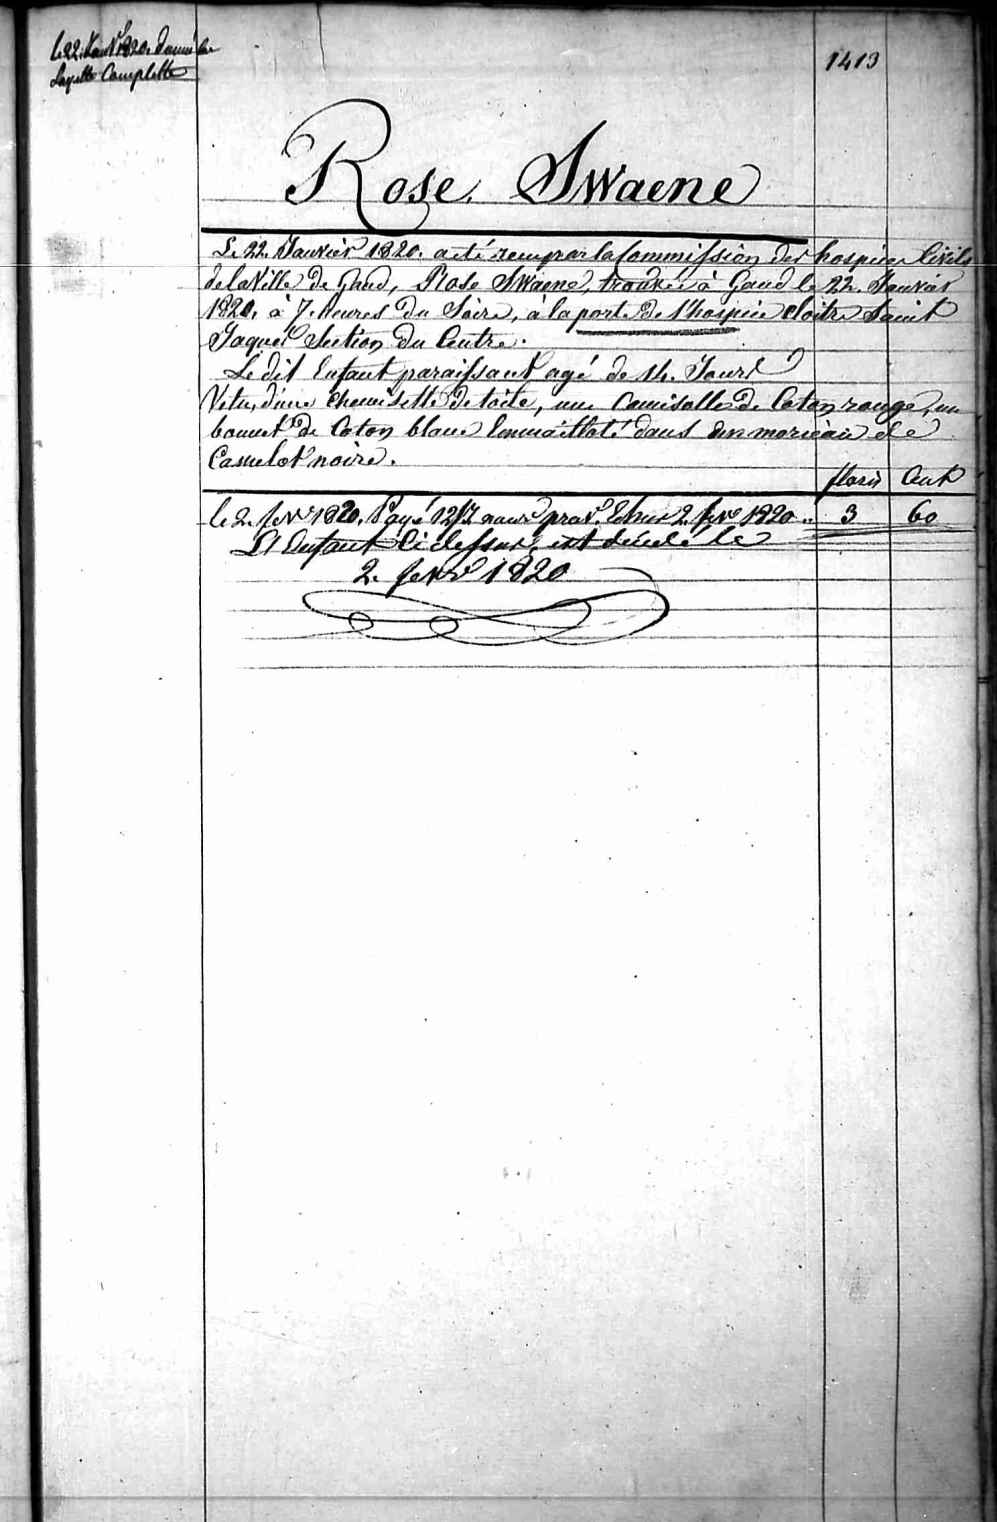 le 22. Janv.r 1820. donné la
Layette Complette
1413
Rose Swaene
Le 22. Janvier 1820. a eté reçu par la Commission des hospices Civils
de la Ville de Gand, Rose Swaene, trouvée à Gand le 22. Janvier
1820. à 7. heures du Soire, à la porte de l'hospice Cloitre Saint
Jaques Section du Centre.
Le dit Enfant paraissant agé de 14. Jours
Vetu, d'une Chemisette de toile, une Camisolle de Coton rouge, un
bonnet de Coton blanc Emmailloté dans un morceau de
Camelot noire.
florin Cent
le 2. fevr 1820. Payé 12/J. prov.t Echus 2. fevr 1820 .. 3 60
L'Enfant Ci dessus, est décédé le
2. fevr 1820